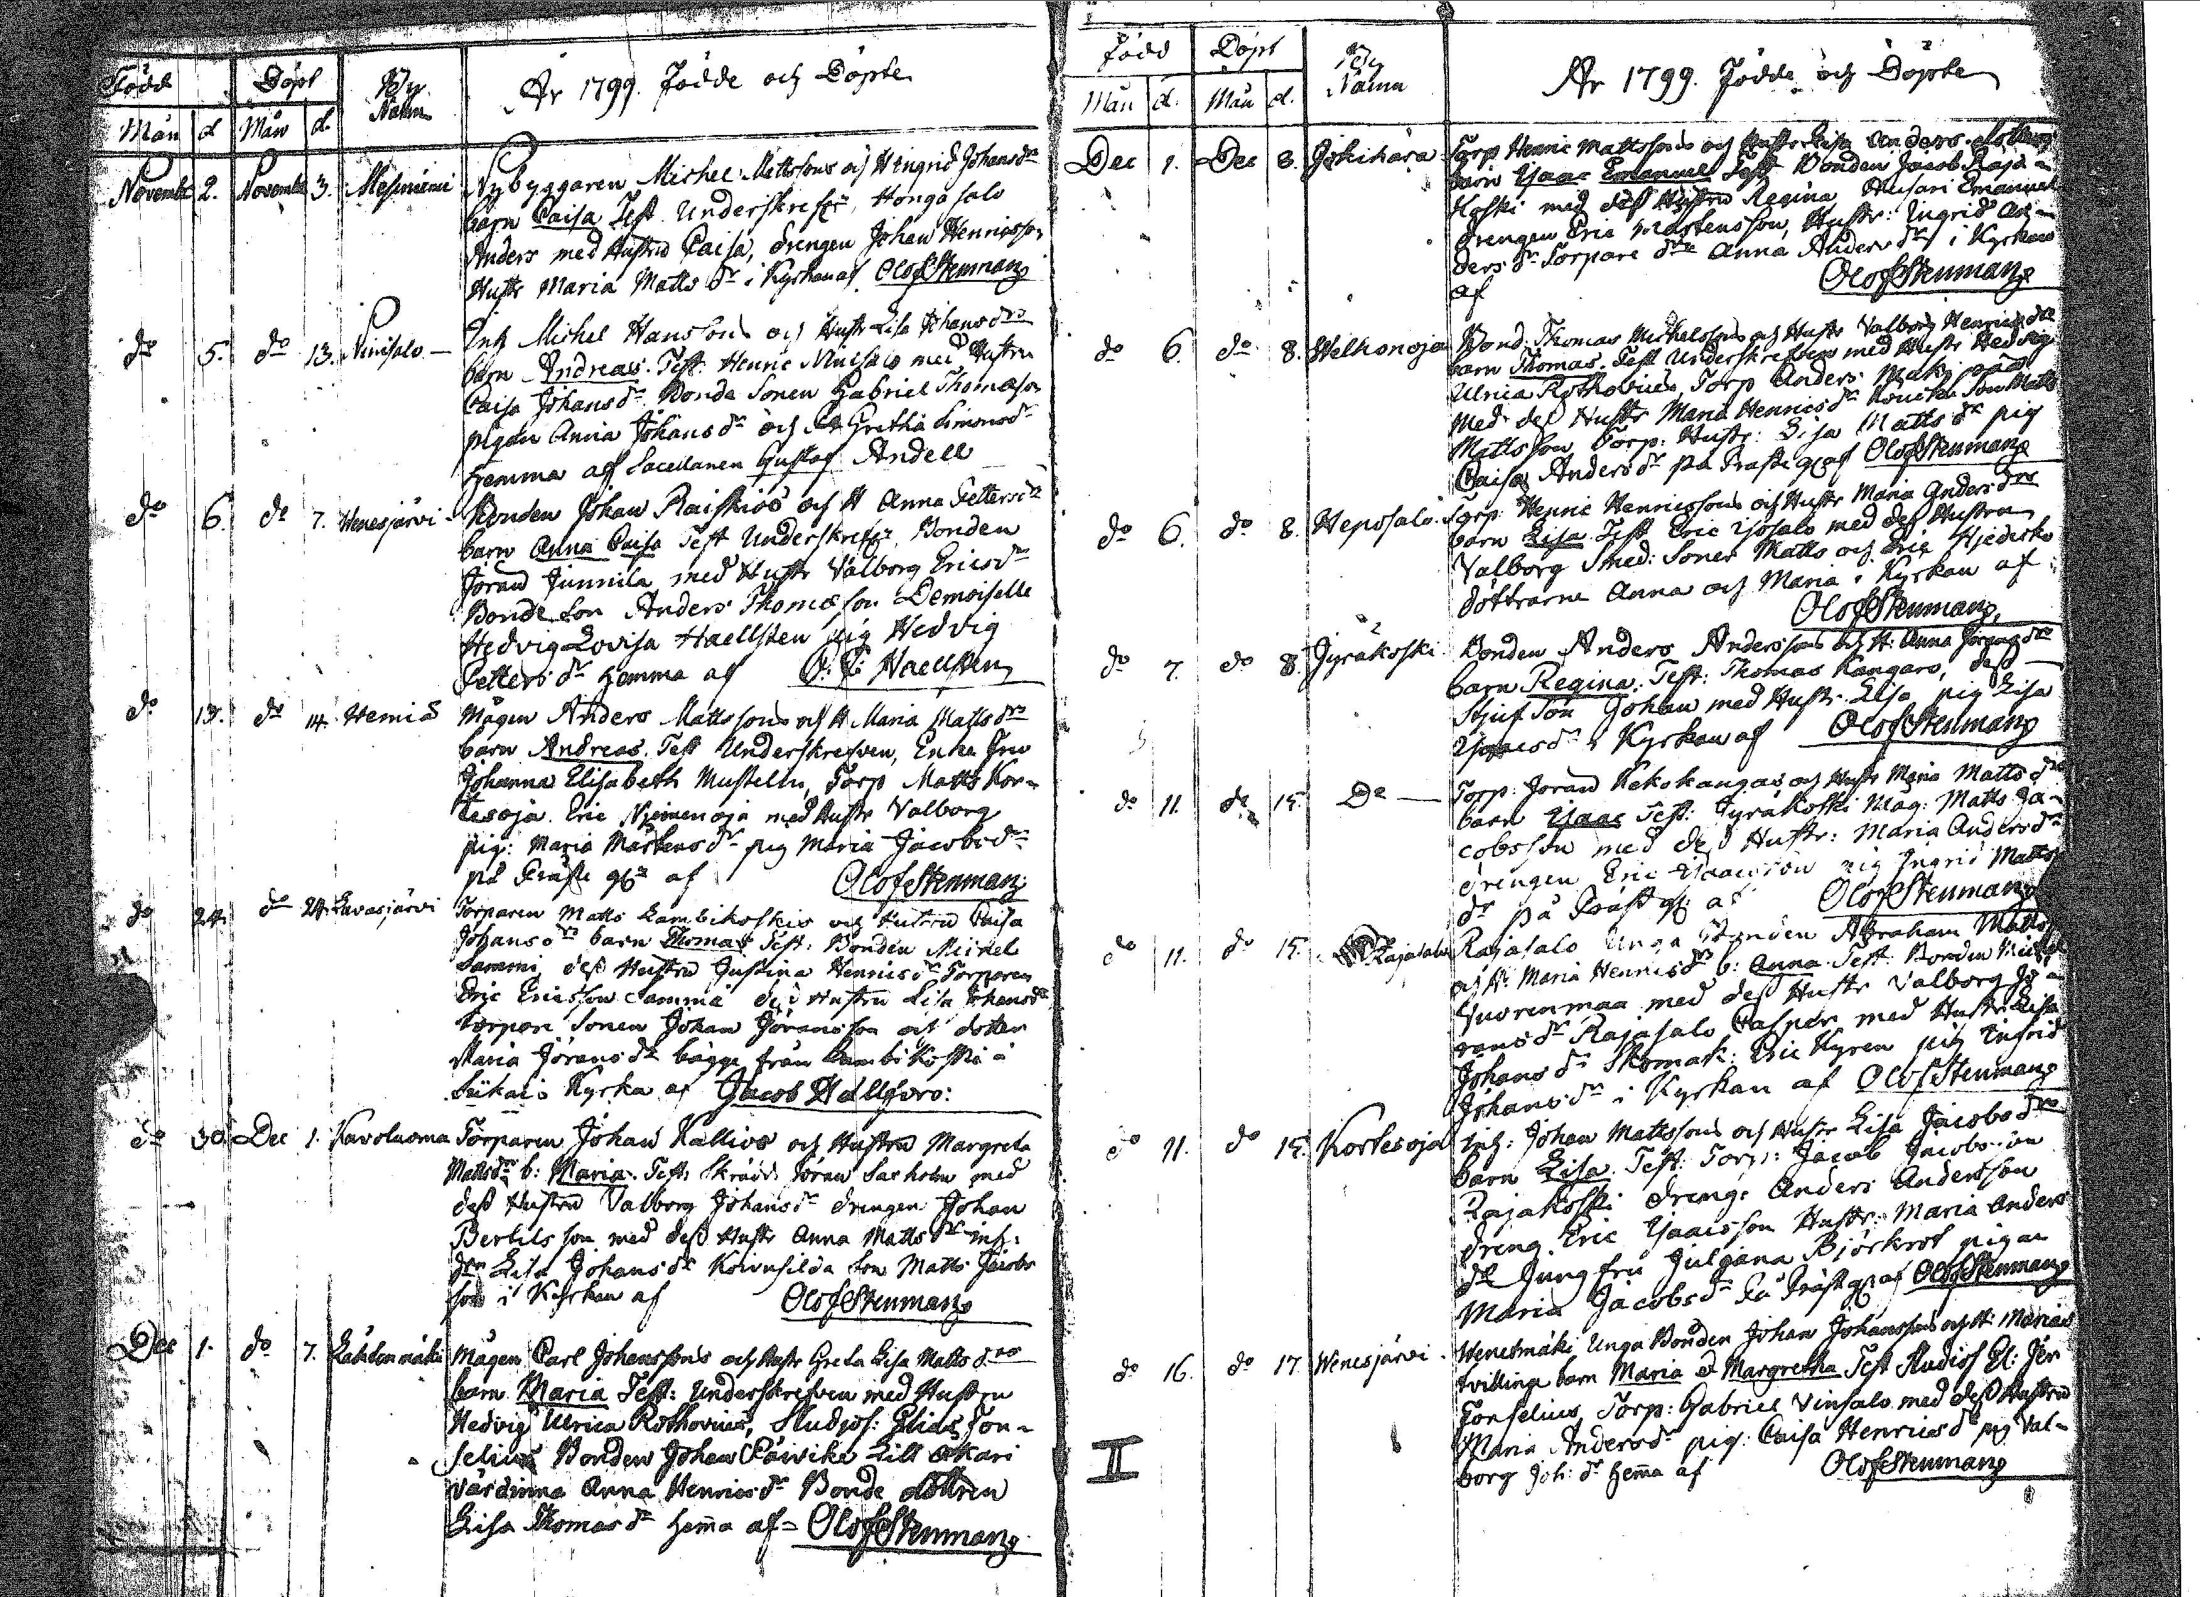 Född Döpt By Namn År 1799. Födde och Döpte
Mån d Mån d.
Novembr 2. Novembr 3. Mesiniemi Nybyggaren Michel Mattssons och H Ingrid Johansdrs
barn Caisa Test. Underskrefn, Hongasalo
Anders med Hustru Caisa, drengen Johan Henricsson
Hustr Maria Matts dr i Kyrkan af Olof Stenman
do 5. do 13. Niinisalo Inh Michel Hanssons och Hustr Lisa Johansdrs
barn Andreas. Test. Henric Niinisalo med Hustru
Caisa Johansdr Bonde Sonen Gabriel Thomasson
pigan Anna Johansdr och Gretha Simonsdr
hemma af Sacellanen Gustaf Andell
do 6. do 7. Wenesjärvi Bonden Johan Raiskios och H Anna Pettersdrs
barn Anna Caisa Test Underskrefn Bonden
Jöran Junnila med Hustr Valborg Ericsdr
Bonde Son Anders Thomasson Demoiselle
Hedvig Lovisa Haellsten pig Hedvig
Petters dr hemma af Haellsten
do 13. do 14. Hemiä Mågen Anders Mattssons och H Maria Mattsdrs
barn Andreas. Test Underskrefven, Enke Fru
Johanna Elisabeth Mustelin, Torp Matts Kor-
tesoja. Eric Niemenoja med Hustr Valborg
pig: Maria Mårtensdr pig Maria Jacobsdr
på Präste g. af Olof Stenman
do 24. do 24. Lavasjärvi Torparen Matts Lambikoskis och Hustru Caisa
Johansdrs barn Thomas Test. Bonden Michel
Sammi, dess Hustru Justina Henricsdr Torparen
Eric Ericsson Samma dess Hustru Lisa Johansdr
torpare Sonen Johan Jöransson och dotter
Maria Jöransdr bägge från Lambikoski i
Siikais Kyrka af Jacob Hallfors:
do 30. Dec 1. Karoluoma Torparen Johan Kallios och Hustru Margreta
Mattsdrs b: Maria. Test: Skrädd. Jöran Saxholm med
dess Hustru Valborg Johansdr drengen Johan
Bertilsson med dess Hustr Anna Mattsdr inh:
Lisa Johansdr Koivusilda Son Matts Jacobs
son i Kyrkan af Olof Stenman
Dec 1. do 7. Kähkönmäki Mågen Carl Johanssons och Hustr Greta Lisa Mattsdrs
barn Maria Test: Underskrefven med Hustru
Hedvig Ulrica Rothovius, Studios: Elias Fon-
selius Bonden Johan Päivike Lill Akkari
värdinna Anna Henricsdr Bonde dottren
Lisa Thomasdr hema af Olof Stenman
Född Döpt By Namn År 1799. Födde och Döpte
Mån d. Mån d.
Dec 1. Dec 8. Jokihara Torp Henric Mattssons och Hustr Lisa Anders dotters
barn Isaac Emanuel Test Bonden Jacob Raja-
koski med dess Hustru Regina Husari Emanuel
drengen Eric Mårtensson, Hustr: Ingrid An-
ders dr Torpare dr Anna Anders dr i Kyrkan
af Olof Stenman
do 6. do 8. Welhonoja Bond. Thomas Michelssons och Hustr Valborg Henricsdrs
barn Thomas. Test Underskrefven med Hustr Hedvig
Ulrica Rothovius, Torp Anders Mäkipää
med dess Hustr Maria Henricsdr Son Matts
Mattsson Torp: Hustr: Lisa Mattsdr pig
Caisa Andersdr på Prästeg. af Olof Stenman
do 6. do 8. Heposalo. Torp: Henric Henricssons och Hustr Maria Andersdrs
barn Lisa. Test Eric Isosalo med dess Hustru
Valborg Smed: Soner Matts och Eric Hjedisko
döttrarne Anna och Maria i Kyrkan af
Olof Stenman
do 7. do 8. Jyräkoski Bonden Anders Anderssons och H: Anna Jöransdrs
barn Regina. Test: Thomas Kangars, dess
Stjuf Son Johan med Hustr. Lisa pig Lisa
Isaacsdr i Kyrkan af Olof Stenman
do 11. do 15. Do Torp: Jöran Kekokangas och Hustr Maria Mattsdrs
barn Isaac Test: Jyräkoski Måg: Matts Ja-
cobsson med dess Hustr: Maria Andersdr
drengen Eric Isaacsson pig Ingrid Matts
dr på Prästg: af Olof Stenman
do 11. do 15. Rajasalo Rajasalo Unga Bonden Abraham Matts
och H: Maria Henricsdrs b: Anna. Test: Bonden Michel
Wuorenmaa med dess Hustr Valborg Jö-
ransdr Rajasalo Casper med Hustr Lisa
Johansdr Skomak: Eric Kyren pig Ingrid
Johansdr i Kyrkan af Olof Stenman
do 11. do 15. Kortesoja Inh: Johan Mattssons och Hustr Lisa Jacobsdrs
barn Lisa. Test: Torp: Jacob Jacobsson
Rajakoski dreng: Anders Andersson
dreng. Eric Isaacsson Hustr: Maria Anders
dr Jungfru Juliana Björkrot pigan
Maria Jacobsdr På Prästg. af Olof Stenman
do 16. do 17. Wenesjärvi Wenesmäki Unga Bonden Johan Johanssons och H: Marias
tvilling barn Maria & Margretha Test Studios El: Jer
Fonselius, Torp: Gabriel Vinsalo med dess Hustru
Maria Andersdr pig: Caisa Henricsdr pig Val-
borg Joh: dr hema af Olof Stenman
II